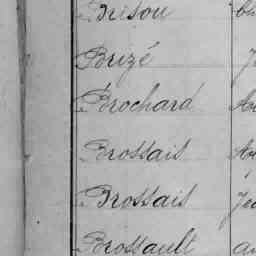 Brisou
Brizé
Brochard
Brossais
Brossais
Brossault